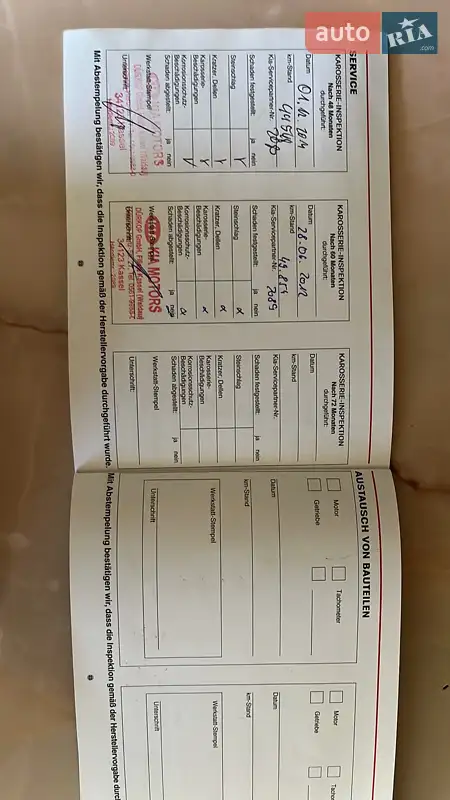 auto RIA .com
SERVICE
KAROSSERIE-INSPEKTION
Nach 48 Monaten
durchgeführt:
Datum
km-Stand
Kia-Servicepartner-Nr.
Schaden festgestellt: ja nein
Steinschlag
Kratzer, Dellen
Karosserie-
Beschädigungen
Korrosionsschutz-
Beschädigungen
Schaden abgestellt: ja nein
Werkstatt-Stempel
Unterschrift:
KIA MOTORS
34123 Kassel
KAROSSERIE-INSPEKTION
Nach 60 Monaten
durchgeführt:
Datum
km-Stand
Kia-Servicepartner-Nr. 7089
Schaden festgestellt: ja nein
Steinschlag
Kratzer, Dellen
Karosserie-
Beschädigungen
Korrosionsschutz-
Beschädigungen
Schaden abgestellt: ja nein
KIA MOTORS
34123 Kassel
KAROSSERIE-INSPEKTION
Nach 72 Monaten
durchgeführt:
Datum
km-Stand
Kia-Servicepartner-Nr.
Schaden festgestellt: ja nein
Steinschlag
Kratzer, Dellen
Karosserie-
Beschädigungen
Korrosionsschutz-
Beschädigungen
Schaden abgestellt: ja nein
Werkstatt-Stempel
Unterschrift:
Mit Abstempelung bestätigen wir, dass die Inspektion gemäß der Herstellervorgabe durchgeführt wurde.
AUSTAUSCH VON BAUTEILEN
Motor Tachometer
Getriebe
Datum
km-Stand
Werkstatt-Stempel
Unterschrift
Motor Tacho
Getriebe
Datum
km-Stand
Werkstatt-Stempel
Unterschrift
Mit Abstempelung bestätigen wir, dass die Inspektion gemäß der Herstellervorgabe durc